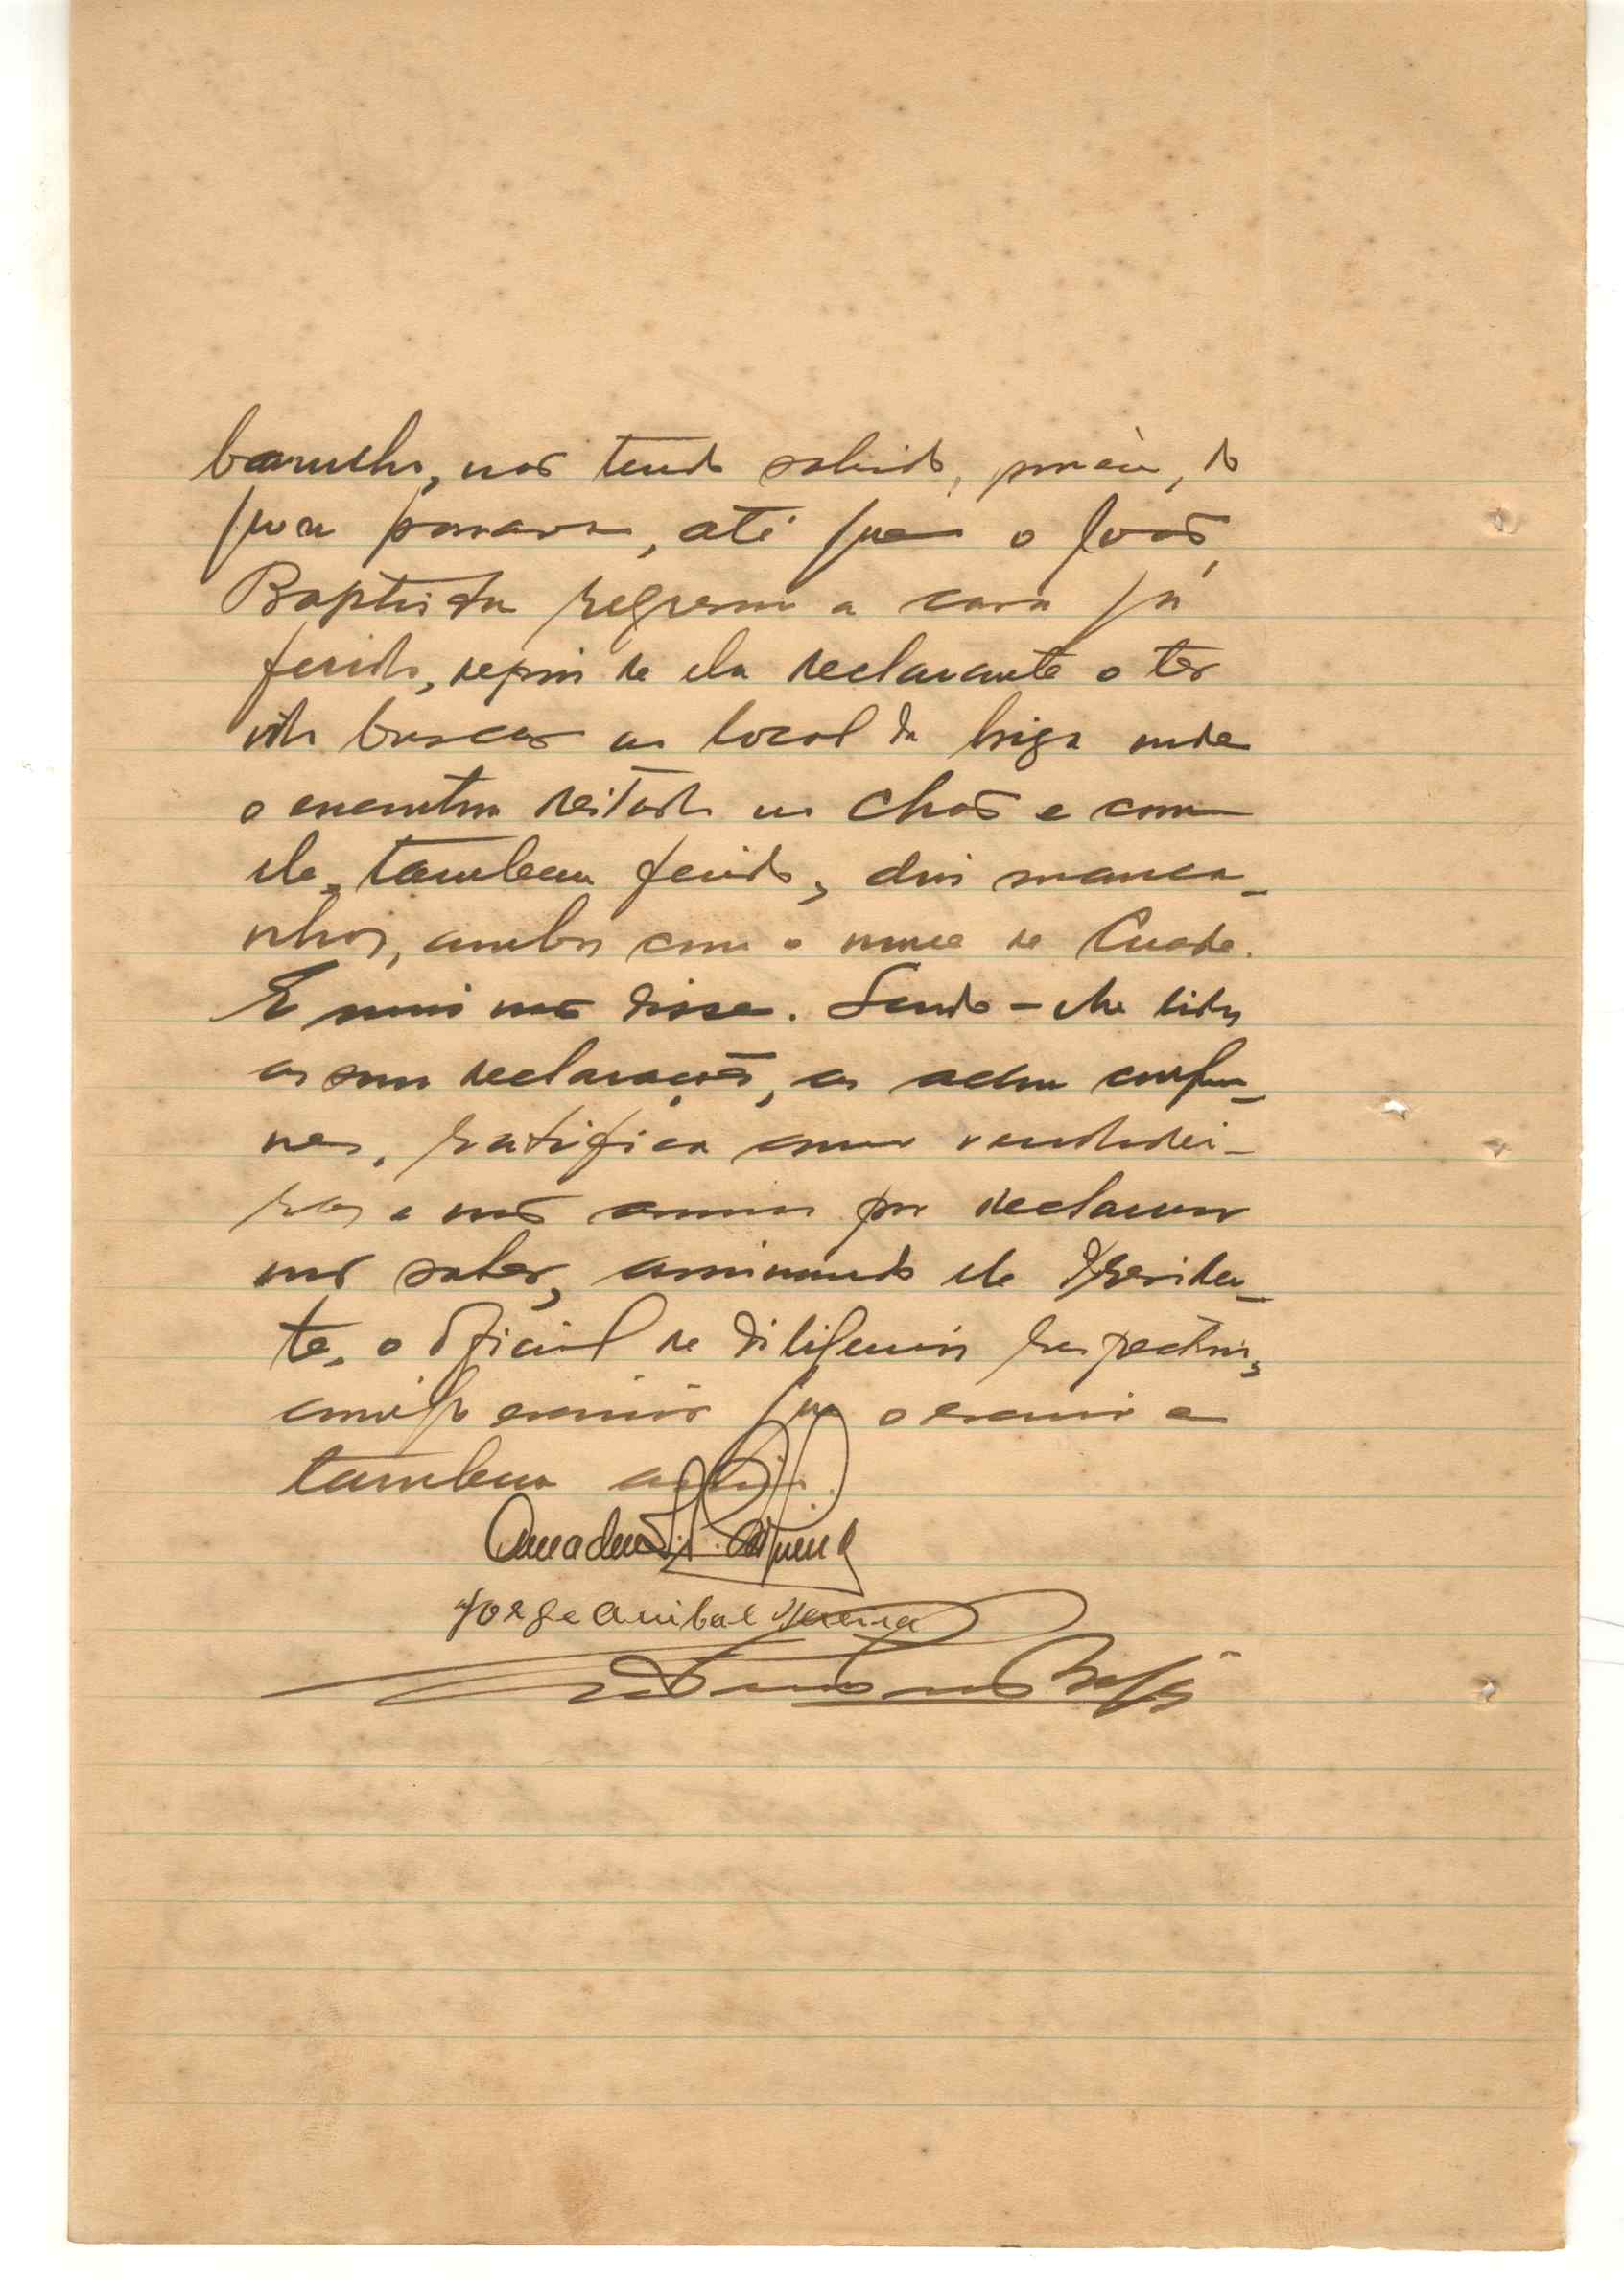 barulho, não tendo sabido, porém, do
que se passava, até que o João
Baptista regressou a casa já
ferido, depois de ela declarante o ter
ido buscar ao local da briga onde
o encontrou deitado no chão e com
ele, tambem ferido, dois manca-
nhos, ambos com o nome de
E mais não disse. Sendo-lhe lidas
as suas declarações, as achou confor-
mes, ratifica como verdadei-
ras e não assina por declarar
não saber, assinando ele Presiden-
te, o oficial de diligencias respectivo,
comigo escrivão que o escrevi e
tambem
Amadeu
Jorge Anibal Pereira